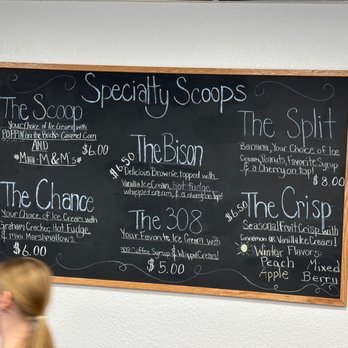 Specialty Scoops
The Scoop
Your Choice of Ice Cream with
POPPIN on the Rock's Caramel Corn
AND
*Mini M&M's*
$6.00
The Chance
Your Choice of Ice Cream with
Graham Cracker, Hot Fudge,
& Mini Marshmallows.
$6.00
The Bison
$6.50
Delicious Brownie topped with
Vanilla Ice Cream, hot fudge,
whipped cream, & a cherry on top!
The 308
Your Favorite Ice Cream with
308 Coffee Syrup & Whipped Cream!
$5.00
The Split
Banana, Your Choice of Ice
Cream, Peanuts, Favorite Syrup
& a Cherry on top!
$8.00
The Crisp
$6.50
Seasonal Fruit Crisp with
Cinnamon OR Vanilla Ice Cream!
Winter Flavors:
Peach Mixed
Apple Berry